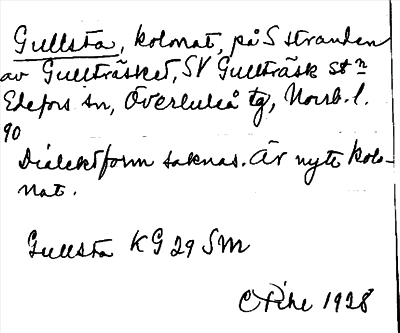 Gullsta, kolonat, på S stranden
av Gullträsket, SV Gullträsk stn
Edefors sn, Överluleå tg, Norrb. l.
90
Dialektform saknas. Är nytt kolo-
nat.
Gullsta KG 29 SM
1928